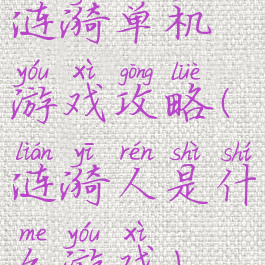 涟漪单机
yóu xì gōng lüè
游戏攻略(
lián yī rén shì shí
涟漪人是什
me yóu xì
么游戏)